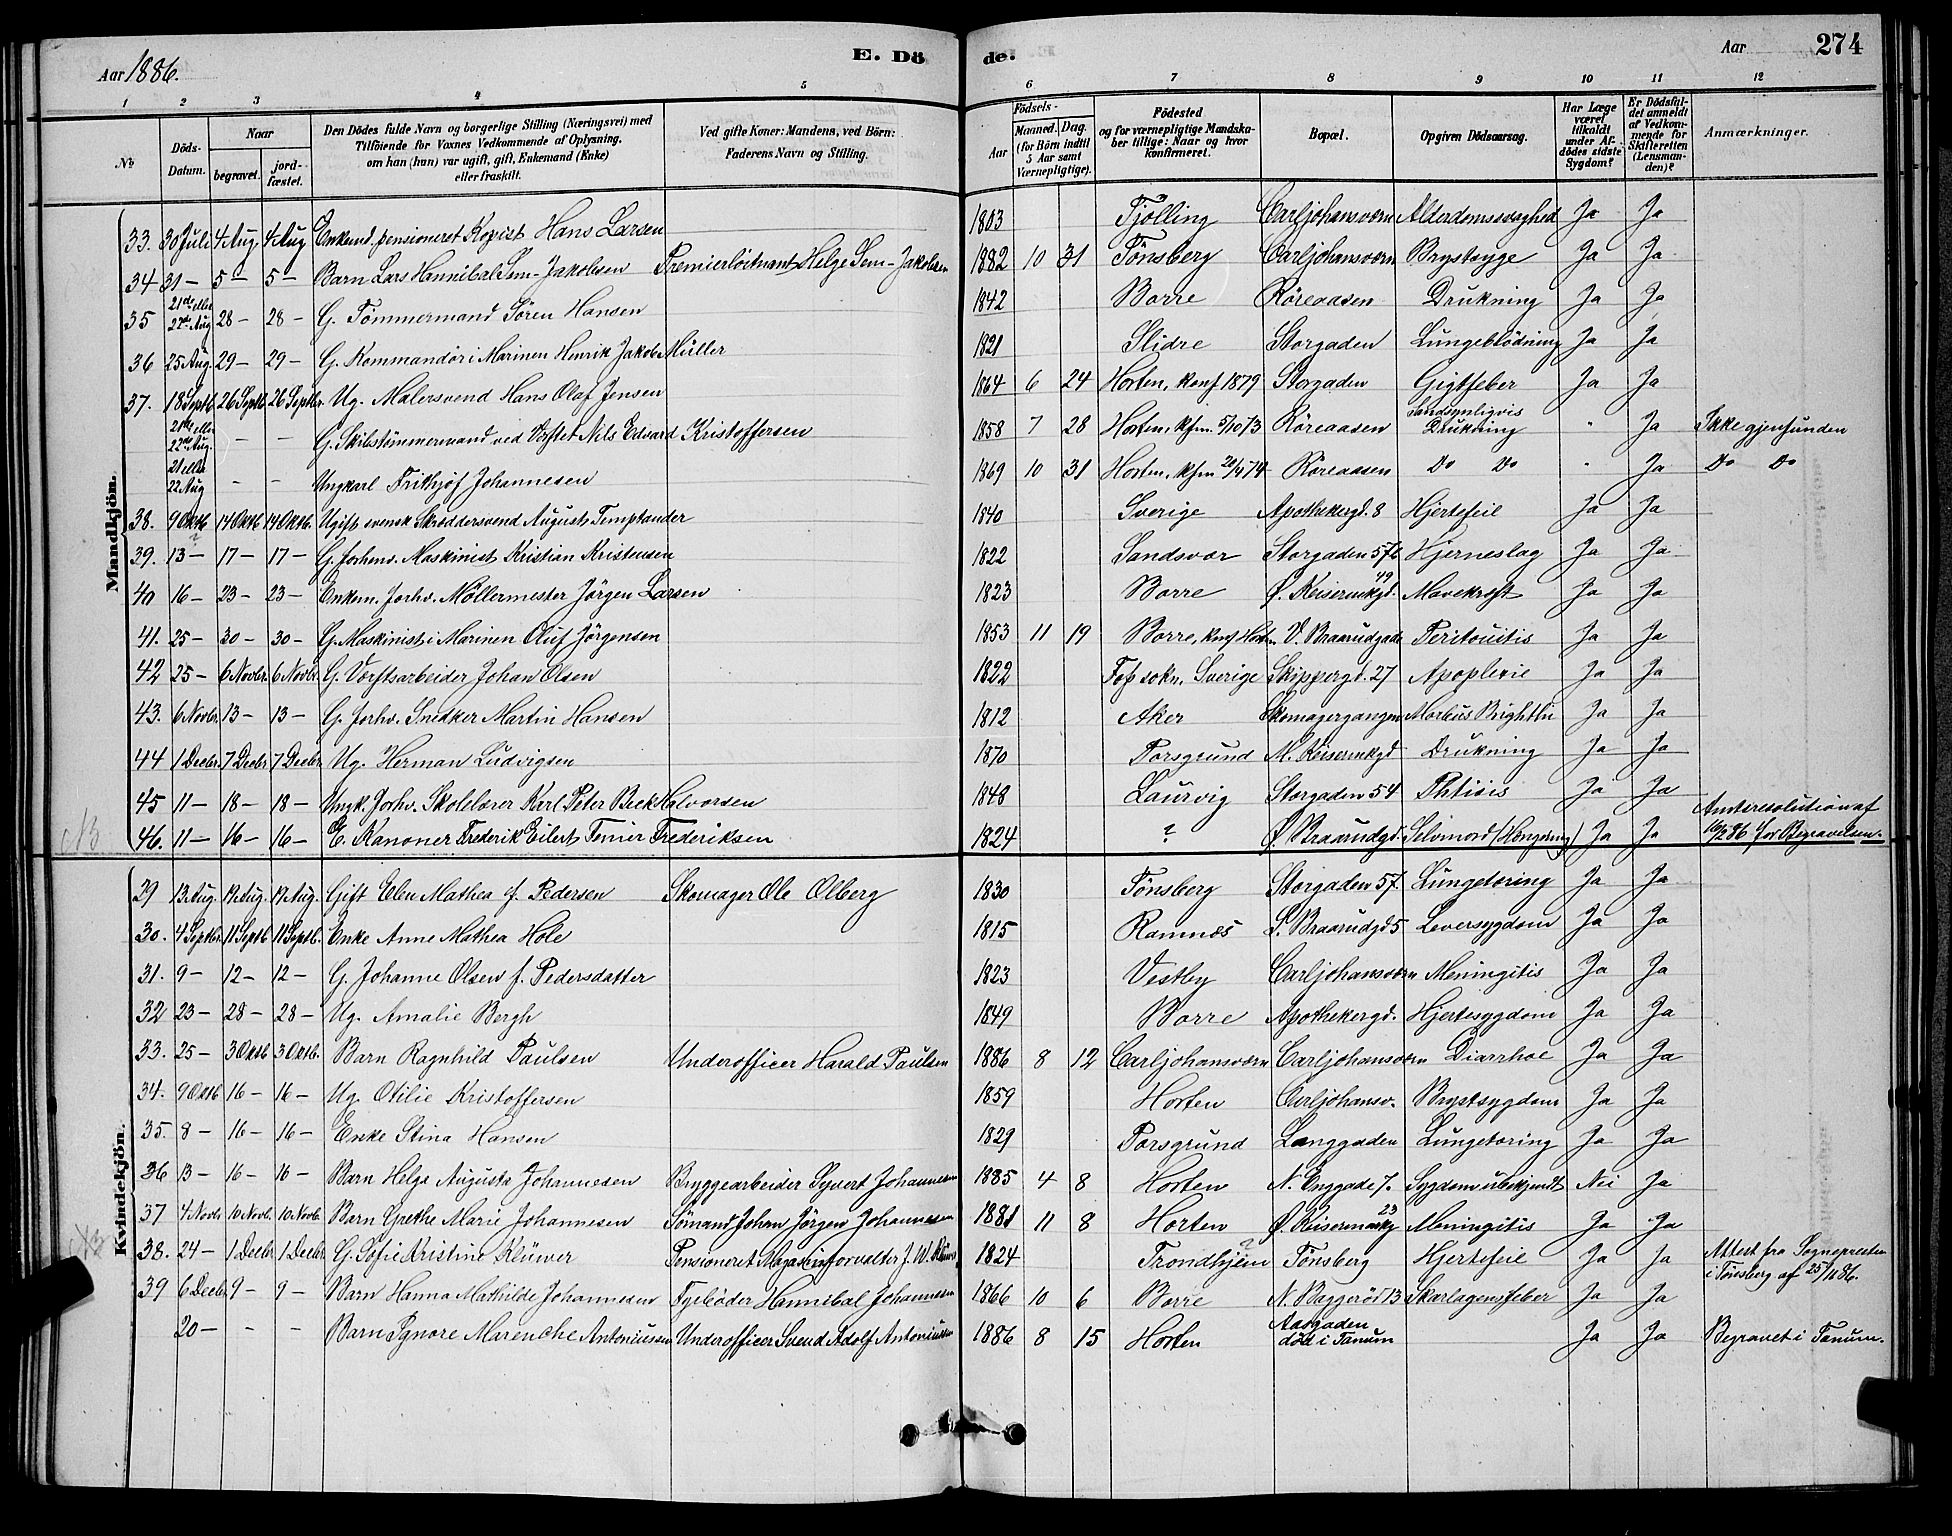 Aar 1886. E. Dö de. Aar 274
1 2 3 4 5 6 7 8 9 10 11 12
No Döds-Datum. Naar begravet. jordfæstet. Den Dödes fulde Navn og borgerlige Stilling (Næringsvei) med Tilföiende for Voxnes Vedkommende af Oplysning, om han (hun) var ugift, gift, Enkemand (Enke) eller fraskilt. Ved gifte Koner: Mandens, ved Börn: Faderens Navn og Stilling. Födsels- Aar Maaned. Dag. (for Börn indtil 5 Aar samt Værnepligtige). Födested og for værnepligtige Mandskaber tillige: Naar og hvor konfirmeret. Bopæl. Opgiven Dödsaarsag. Har Læge været tilkaldt under Afdödes sidste Sygdom? Er Dödsfaldet anmeldt af Vedkommende for Skifteretten (Lensmanden)? Anmærkninger.
Mandkjön.
33. 30 Juli 4 Aug 4 Aug Enkemd. pensioneret Kopist Hans Larsen 1803 Tjölling Carljohansværn Alderdomssvaghed Ja Ja
34 31 – 5 – 5 – Barn Lars Hannibal Sem-Jakobsen Premierlöitnant Helge Sem-Jakobsen 1882 10 31 Tönsberg Carljohansværn Brystsyge Ja Ja
35 21de eller 22de Aug 28 – 28 – G. Tömmermand Sören Hansen 1842 Borre Röreaasen Drukning Ja Ja
36 25 Aug 29 – 29 – G. Kommandör i Marinen Henrik Jakob Müller 1821 Slidre Storgaden Lungeblödning Ja Ja
37. 18 Septb 26 Septb 26 Septbr. Ug. Malersvend Hans Olaf Jensen 1864 6 24 Horten, konf 1879 Storgaden Gigtfeber Ja Ja
21de eller 22de Aug. – – G. Skibstömmermand ved Værftet Nils Edvard Kristoffersen 1858 7 28 Horten, kfm. 5/10 73 Röreaasen Sandsynligvis Drukning " Ja Ikke gjenfunden
21 eller 22 Aug – – Ungkarl Frithjof Johannesen 1869 10 31 Horten, kfm Röreaasen Do Do " Ja Do Do
38. 9 Oktb 14 Oktb 14 Oktb. Ugift svensk Skræddersvend August Temptander 1840 Sverige Apothekergd. 8 Hjertefeil Ja Ja
39. 13 – 17 – 17 – G. forhenv. Maskinist Kristian Kristensen 1822 Sandsvær Storgaden 57b Hjerneslag Ja Ja
40 16 – 23 – 23 – Enkem. forhv. Möllermester Jörgen Larsen 1823 Borre Ø. Keisermkgd. 49 Mavekræft Ja Ja
41. 25 – 30 – 30 – G. Maskinist i Marinen Oluf Jörgensen 1853 11 19 Borre, konf Horten V. Braarudgade Peritonitis Ja Ja
42 25 – 6 Novbr. 6 Novbr. G. Værftsarbeider Johan Olsen 1822 Fos sokn. Sverige Skippergd. 27 Apoplexie Ja Ja
43. 6 Novbr. 13 – 13 – G. forhv. Snedker Martin Hansen 1812 Aker Skomagergangen Morbus Brightii Ja Ja
44 1 Decbr. 7 Decbr. 7 Decbr. Ug. Herman Ludvigsen 1870 Porsgrund M. Keisermkgd Drukning Ja Ja
45 11 – 18 – 18 – Ungk. forhv. Skolelærer Karl Peter Beck Halvorsen 1848 Laurvig Storgaden 54 Phtisis Ja Ja
NB 46. 11 – 16 – 16 – E. Kanoner Frederik Eilert Frederiksen 1824 ? Ø. Braarudgd. Selvmord (Hængning) Ja Ja Amtsresolution af 12 86 for Begravelsen.
Kvindekjön.
29 13 Aug. 19 Aug. 19 Aug. Gift Elen Mathea f. Pedersen Skomager Ole Olberg 1830 Tönsberg Storgaden 57. Lungetæring Ja Ja
30. 4 Septbr. 11 Septb 11 Septb. Enke Anne Mathea Hole 1815 Ramnæs S. Braarudgd 5 Leversygdom Ja Ja
31. 9 – 12 – 12 – G. Johanne Olsen f. Pedersdatter 1823 Vestby Carljohansværn Meningitis Ja Ja
32 23 – 28 – 28 – Ug. Amalie Bergh 1849 Borre Apothekergd. Hjertesygdom Ja Ja
33. 25 – 3 Oktb 3 Oktb. Barn Ragnhild Paulsen Underofficer Harald Paulsen 1886 8 12 Carljohansværn Carljohansværn Diarrhoe Ja Ja
34. 9 Oktb 16 – 16 – Ug. Otilie Kristoffersen 1859 Horten Carljohansv. Brystsygdom Ja Ja
35. 8 – 16 – 16 – Enke Stina Hansen 1829 Porsgrund Langgaden Lungetæring Ja Ja
36 13 – 16 – 16 – Barn Helga Augusta Johannesen Bryggearbeider Syvert Johannesen 1885 4 8 Horten N. Enggade 7. Sygdom ubekjendt Nei Ja
37 4 Novb. 10 Novb. 10 Novb. Barn Grethe Marie Johannesen Sömand Johan Jörgen Johannesen 1881 11 8 Horten Ø. Keisermarkg 23 Meningitis Ja Ja
NB 38. 24 – 1 Decbr 1 Decbr G. Sofie Kristine Klüwer Pensioneret Magasinforvalter J. W. Klüwer 1824 Trondhjem ? Tönsberg Hjertefeil Ja Ja Attest fra Sognepresten i Tönsberg af 25/11 86.
39 6 Decbr. 9 – 9 – Barn Hanna Mathilde Johannesen Fyrböder Hannibal Johannesen 1866 10 6 Borre N. Baggerös 13 Skarlagensfeber Ja Ja
20 – – – Barn Signore Marenche Antoniussen Underofficer Svend Adolf Antoniussen 1886 8 15 Horten Aasgaden död i Tanum Ja Ja Begravet i Tanum.